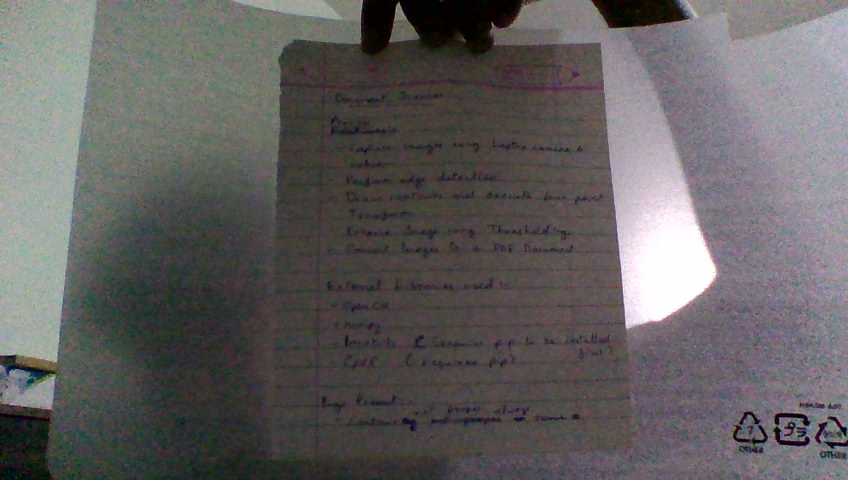 Document Scanner
Process
- Capture images using Laptop camera &
- Perform edge detection
- Draw contours and execute four point
Transform
- Enhance Image using Thresholding
- Convert Images to a PDF Document
External Libraries used :-
- OpenCV
- numpy
- (requires pip to be installed
first)
- fpdf (requires pip)
Bugs Present :-
not proper always
- Contours on some
OTHER
95
OTHER